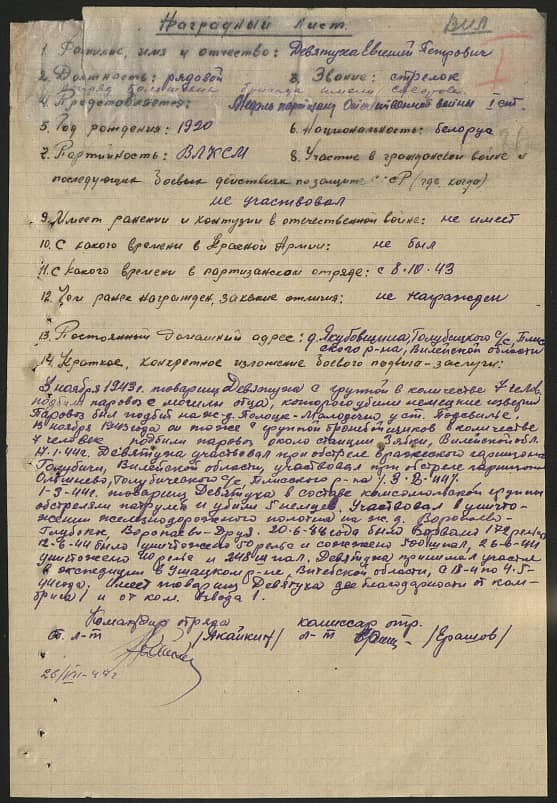 Наградный Лист.
ВИЛ
1. Фамилие, имя и отчество: Девятуха Евгений Петрович
2. Должность: рядовой 3. Звание: стрелок
бригада имени
4. Представляется: Медаль партизану Отечественной войны I ст.
5. Год рождения: 1920 6. Национальность: белорус
7. Партийность: ВЛКСМ 8. Участие в гражданской войне и
последующих боевых действиях по защите СССР (где, когда)
не участвовал
9. Имеет ранении и контузии в отечественной войне: не имеет
10. С какого времени в Красной Армии: не был
11. С какого времени в партизанском отряде: с 8-10-43
12. Чем ранее награжден, за какие отличия: не награжден
13. Постоянный домашний адрес: д. Якубовщина, Голубицкого с/с, Плис
ского р-на, Вилейской области
14. Краткое, конкретное изложение боевого подвига-заслуги:
ноября 1943г. товарищ Девятуха с группой в количестве 7 челов.
подбили паровоз с могилы отца, которого убили немецкие изверги
Паровоз был подбит на ж.д. Полоцк-Молодечно у ст. Подсвилье.
ноября 1943 года он тоже с группой бронебойщиков в количестве
7 человек подбили паровоз около станции Зябки, Вилейской обл.
1-44г. Девятуха участвовал при обстреле вражеского гарнизона
Голубичи, Вилейской области, участвовал при обстреле гарнизона
Голубического с/с, Плисского р-на
1-3-44г. товарищ Девятуха в составе комсомольской группы
обстреляли патруля и убили 5 немцев. Участвовал в уничто-
жении железнодорожного полотна на ж.д. Воропаево-
Глубокое, Воропаево-Друя. 20-6-44 года было взорвано
12-6-44 было уничтожено рельс и сожжено шпал, 26-6-44
уничтожено 40 рельс и 248 шпал. Девятуха принимал участие
в экспедиции в Ушацком р-не, Витебской области, с 18-4 по 4-5-
44 года. Имеет товарищ Девятуха две благодарности от ком-
брига 1 и от ком. взвода 1.
Командир отряда комиссар отр.
ст. л-т /Акайкин/ л-т /Ерашов/
26/VII-44г